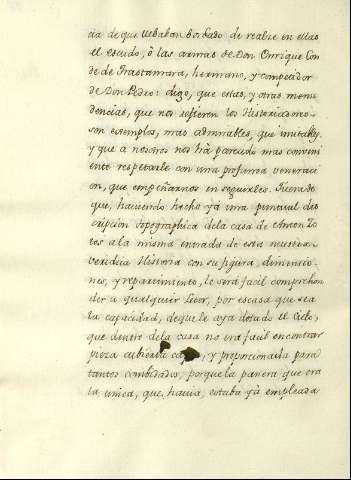 cia de que llebaban bordado de realze en ellas
el escudo, ò las armas de Don Enrique Con
de de Trastamara, hermano, y competidor
de Don Pedro: digo, que estas, y otras menu
dencias, que nos refieren los Historiadores
son exemplos, mas admirables, que imitables,
y que a nosotros nos hà parecido mas conveni
ente respetarle con una profunda veneraci
on, que empeñarnos en seguirles. Fuera de
que, haviendo hecho yà una puntual des
cripcion topographica de la casa de Anton Zo
tes a la misma entrada de esta nuestra
veridica Historia con su figura, dimensio
nes, y repartimiento, le será facil comprehen
der a qualquier Letor, por escasa que sea
la capacidad, de que le aya dotado el Cielo,
que dentro de la casa no erà facil encontrar
pieza cubierta capaz, y proporcionada para
tantos combidados, porque la panera que era
la unica, que havia, estaba yà empleada